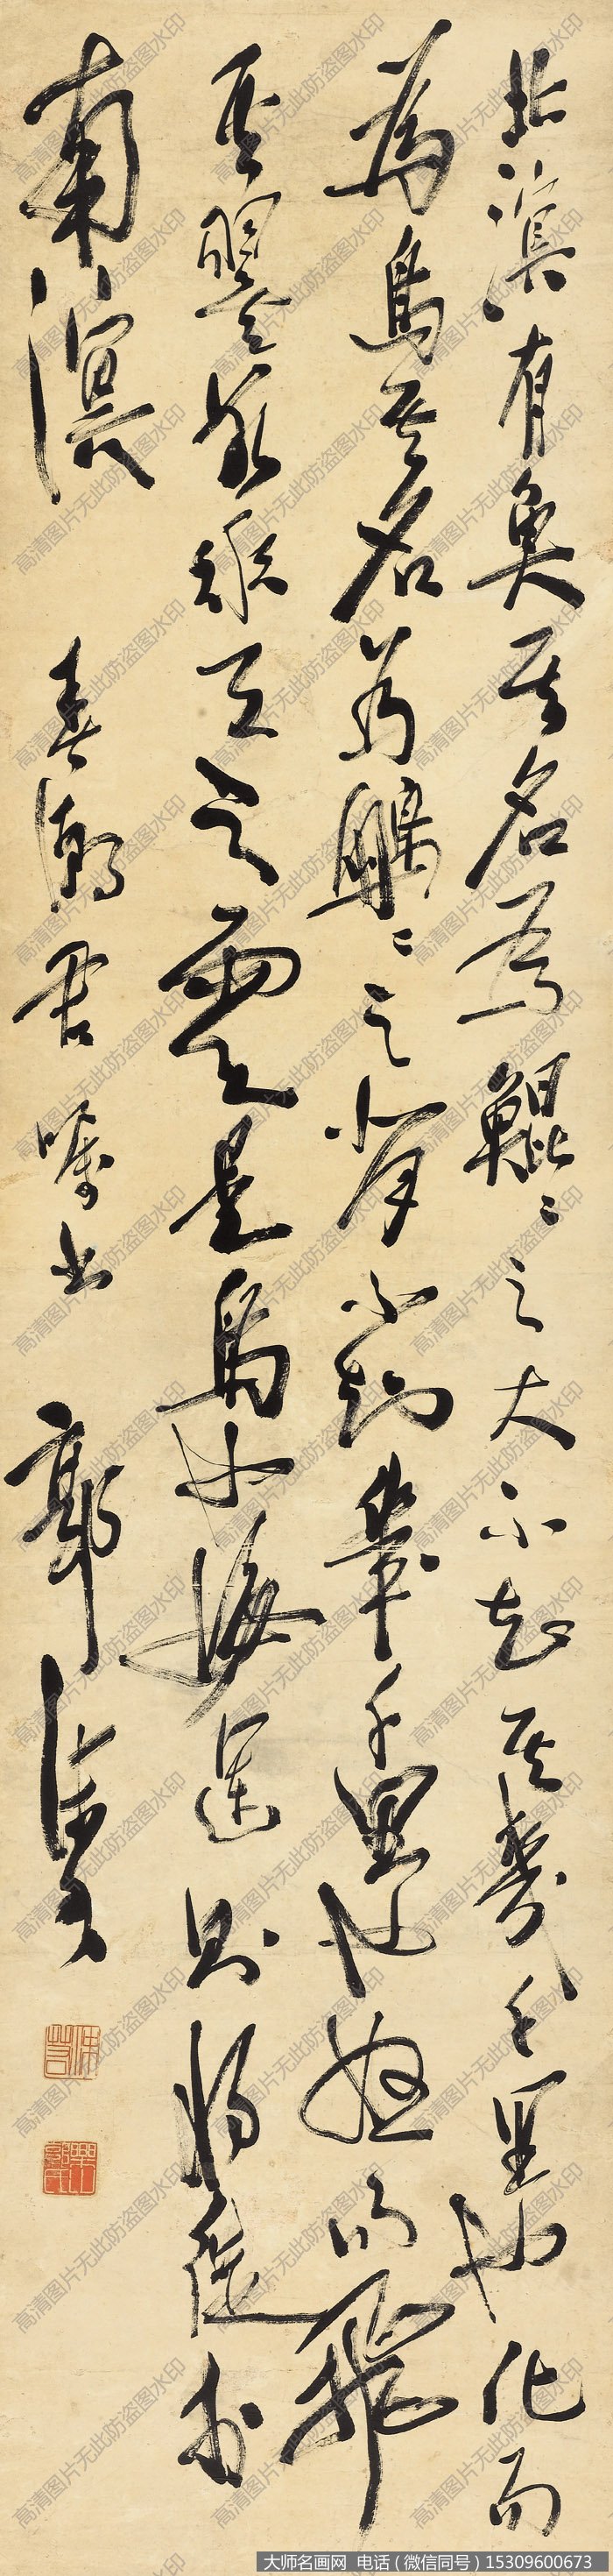 北溟有魚其名為鯤〻之大不知其幾千里也化而
為鳥其名為鵬〻之背不知幾千里也怒而飛
其翼若垂天之雲是鳥也海運則將徙於
南溟 春潮君囑書 郭沫若
沫若
高清图片无此防盗图水印
大师名画网 电话（微信同号）15309600673